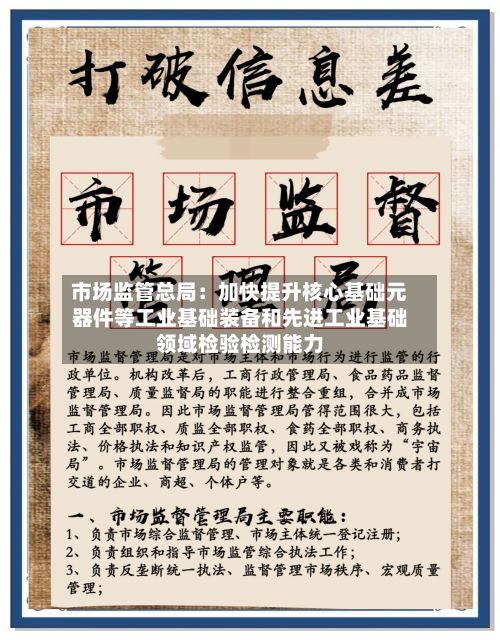 打破信息差
市场监督
管理局
市场监管总局：加快提升核心基础元
器件等工业基础装备和先进工业基础
领域检验检测能力
市场监督管理局是对市场主体和市场行为进行监管的行
政单位。机构改革后，工商行政管理局、食品药品监督
管理局、质量监督局的职能进行整合重组，合并成市场
监督管理局。因此市场监督管理局管得范围很大，包括
工商全部职权、质监全部职权、食药全部职权、商务执
法、价格执法和知识产权监管，因此又被戏称为“宇宙
局”。市场监督管理局的管理对象就是各类和消费者打
交道的企业、商超、个体户等。
一、市场监督管理局主要职能：
1、负责市场综合监督管理、市场主体统一登记注册；
2、负责组织和指导市场监管综合执法工作；
3、负责反垄断统一执法、监督管理市场秩序、宏观质量
管理；